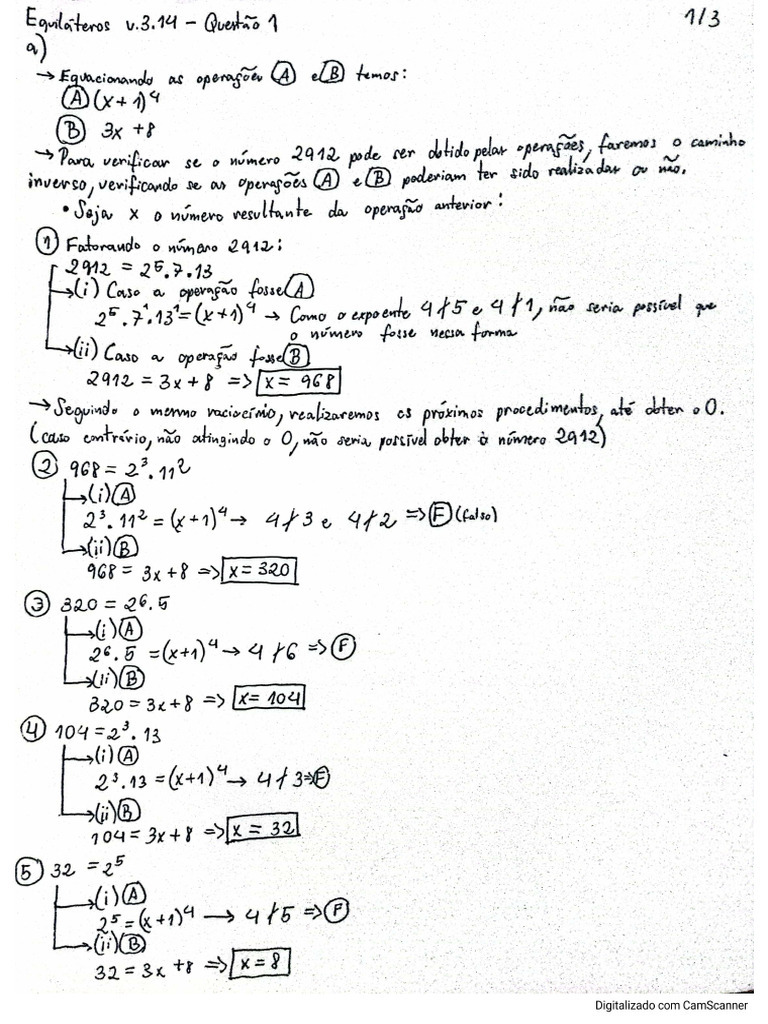 Equiláteros v.3.14 - Questão 1
1/3
a)
→ Equacionando as operações Ⓐ e Ⓑ temos:
Ⓐ (x+1)⁴
Ⓑ 3x+8
→ Para verificar se o número 2912 pode ser obtido pelas operações, faremos o caminho
inverso, verificando se as operações Ⓐ e Ⓑ poderiam ter sido realizadas ou não.
• Seja x o número resultante da operação anterior:
① Fatorando o número 2912:
2912 = 2⁵.7.13
→ (i) Caso a operação fosse Ⓐ
2⁵.7¹.13¹ = (x+1)⁴ → Como o expoente 4∤5 e 4∤1, não seria possível que
o número fosse nessa forma
→ (ii) Caso a operação fosse Ⓑ
2912 = 3x+8 => x = 968
→ Seguindo o mesmo raciocínio, realizaremos os próximos procedimentos, até obter o 0.
(caso contrário, não atingindo o 0, não seria possível obter o número 2912)
② 968 = 2³.11²
→ (i) Ⓐ
2³.11² = (x+1)⁴ → 4∤3 e 4∤2 => Ⓕ (falso)
→ (ii) Ⓑ
968 = 3x+8 => x = 320
③ 320 = 2⁶.5
→ (i) Ⓐ
2⁶.5 = (x+1)⁴ → 4∤6 => Ⓕ
→ (ii) Ⓑ
320 = 3x+8 => x = 104
④ 104 = 2³.13
→ (i) Ⓐ
2³.13 = (x+1)⁴ → 4∤3 => Ⓕ
→ (ii) Ⓑ
104 = 3x+8 => x = 32
⑤ 32 = 2⁵
→ (i) Ⓐ
2⁵ = (x+1)⁴ → 4∤5 => Ⓕ
→ (ii) Ⓑ
32 = 3x+8 => x = 8
Digitalizado com CamScanner